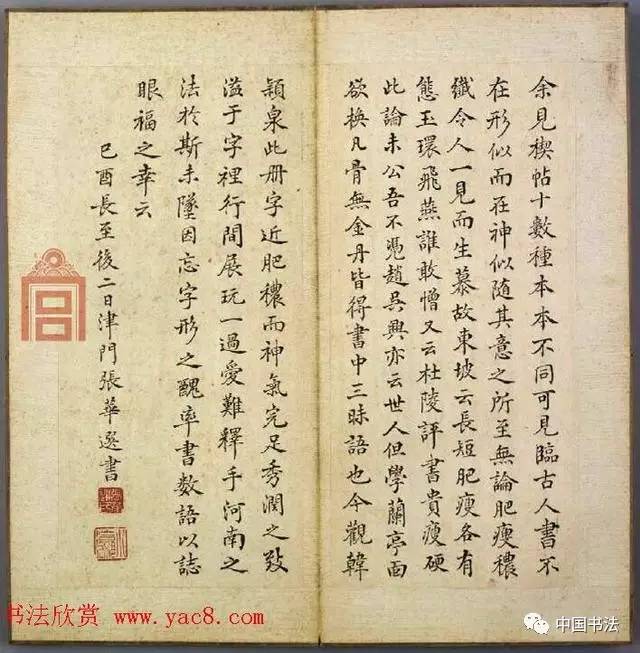 余見稧帖十數種本本不同可見臨古人書不
在形似而在神似隨其意之所至無論肥瘦穠
纖令人一見而生慕故東坡云長短肥瘦各有
態玉環飛燕誰敢憎又云杜陵評書貴瘦硬
此論未公吾不憑趙吳興亦云世人但學蘭亭面
欲換凡骨無金丹皆得書中三昧語也今觀韓
穎泉此册字近肥穠而神氣完足秀潤之致
溢于字裡行間展玩一過愛難釋手河南之
法於斯未墜因忘字形之醜率書數語以誌
眼福之幸云
己酉長至後二日津門張華選書
书法欣赏 www.yac8.com
中国书法